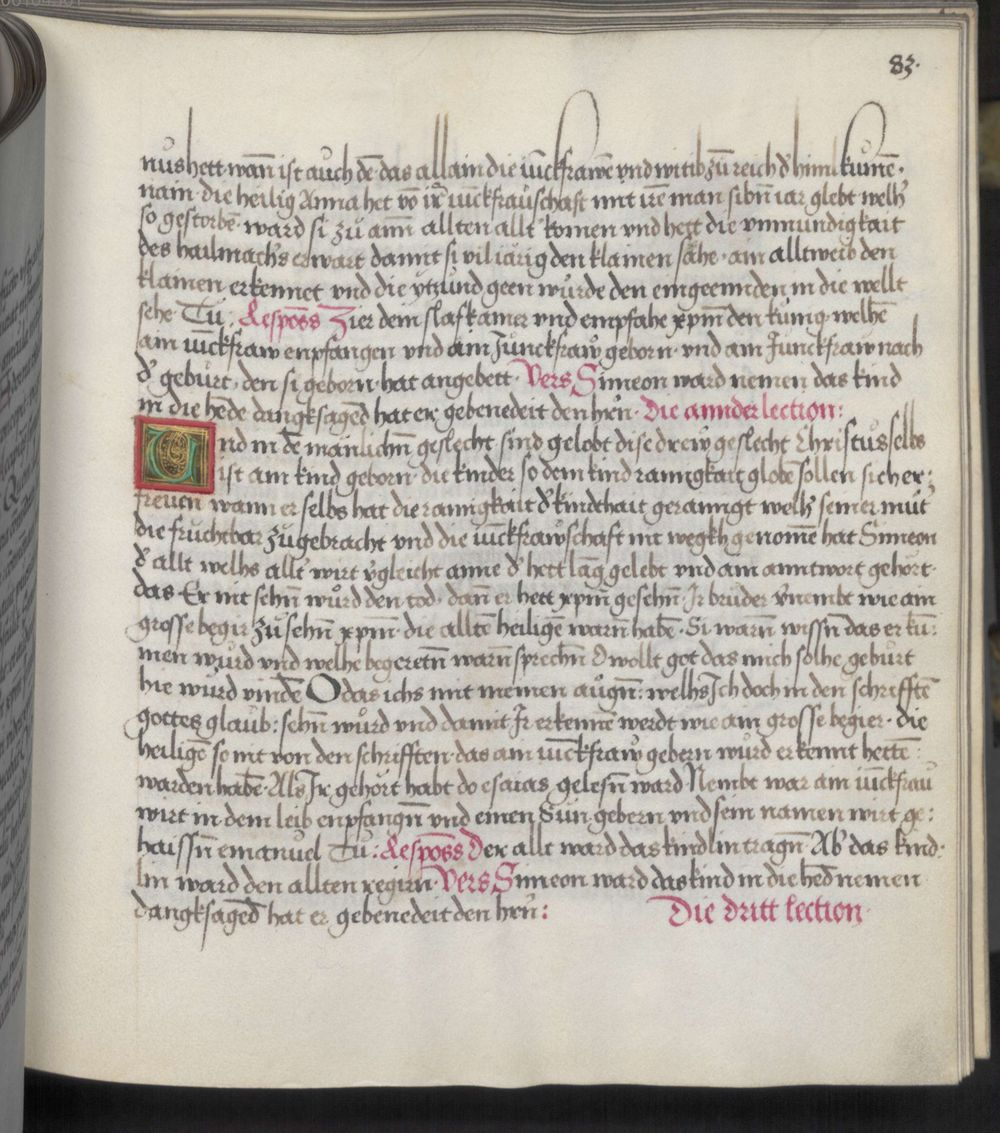 83.
nüshett wan̄ ist auch dē das allain die iūckfrawē vnd witib zū reich d' himl kumē·
nain· die heilig Anna het vō ir̄ iūckfrauschaft mit irē man sibn̄ iar glebt welh'
so gestorbē· ward si zū ann̄ allten allt' komen vnd hett die vnmundigkait
des hailmach's erwart damit si vil iärig den klainen sähe· ain alltweib den
klainen erkennet vnd die geen würde den eingeenden in die wellt
sehe· Tu: Resposs Zier dein slafkamer vnd empfahe xpm̄ den künig· welhē
ain iūckfraw enpfangen vnd ain Junckfraw geborn· vnd ain Junckfraw nach
d' gebürt, den si geborn· hat angebett· Vers Simeon ward nemen das kind
in die hēde dangksagēd hat er gebenedeit den hrn̄· Die annder lection:
Und in dē mänlichn̄ geslecht sind gelobt dise drew geslecht Christus selbs
ist ain kind geborn· die kinder so dem kind rainigkait globē sollen sich er:
freuen wann er selbs hat die rainigkait d' kindhait gerainigt welh' seiner müt'
die fruchtbar zūgebracht vnd die iūckfrawschaft nit wegkh genomē hat Simeon
d' allt welhs allt' wirt v'gleicht anne d' hett lāg gelebt vnd ain anntwort gehört·
das Er nit sehn̄ würd den tod· dan̄ er hett xpm̄ gesehn̄· Ir brüder v'nembt wie ain
grosse begir zū sehn̄ xpm̄· die alltē heiligē warn̄ habē· Si warn̄ wissn̄ das er kū:
men würd vnd welhe begeretn̄ warn̄ sprechn̄ O wollt got das mich solhe gebürt
hie würd vindē O das ichs mit meinen augn̄: welhs Ich doch in den schrifftē
gottes glaub: sehn̄ würd vnd damit Ir erkennē werdt wie ain grosse begier· die
heiligē so mit von den schrifften· das ain iūckfraw gebern würd erkennt hettē
warden habē· Als Ir gehört habt do esaias gelesn̄ ward Nembt war ain iūckfrau
wirt in dem leib enpfangn̄ vnd einen Sun gebern vnd sein namen wirt ge:
haissn̄ emanuel Tu: Resposs Der allt ward das kindlin tragn̄· Ab' das kind:
lin ward den allten regirn· Vers Simeon ward das kind in die hēd nemen
dangksagēd hat er gebenedeit den hrn̄: Die dritt lection·